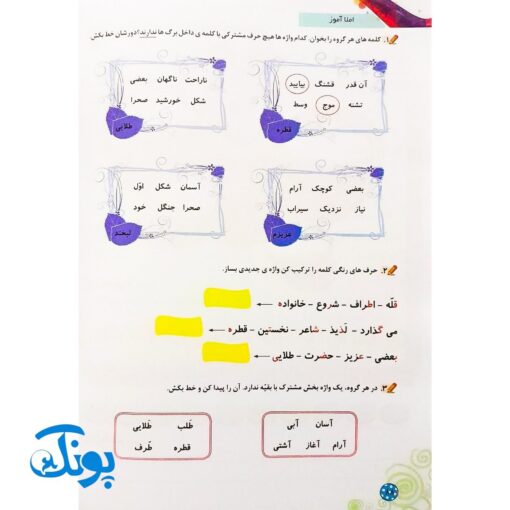 املا آموز
۱. کلمه های هر گروه را بخوان. کدام واژه ها هیچ حرف مشترکی با کلمه ی داخل برگ ها ندارند؟ دورشان خط بکش
آن قدر قشنگ بیایید
تشنه موج وسط
قطره
ناراحت ناگهان بعضی
شکل خورشید صحرا
طلایی
بعضی کوچک آرام
نیاز نزدیک سیراب
عزیزم
آسمان شکل اوّل
صحرا جنگل خود
لبخند
۲. حرف های رنگی کلمه را ترکیب کن واژه ی جدیدی بساز.
قلّه - اطراف - شروع - خانواده ←
می گذارد - لَذیذ - شاعر - نخستین - قطره ←
بعضی - عزیز - حضرت - طلایی ←
۳. در هر گروه، یک واژه بخش مشترک با بقیّه ندارد. آن را پیدا کن و خط بکش.
آسان آبی
آرام آغاز آشتی
طَلب طَلایی
قطره طَرف
پونک